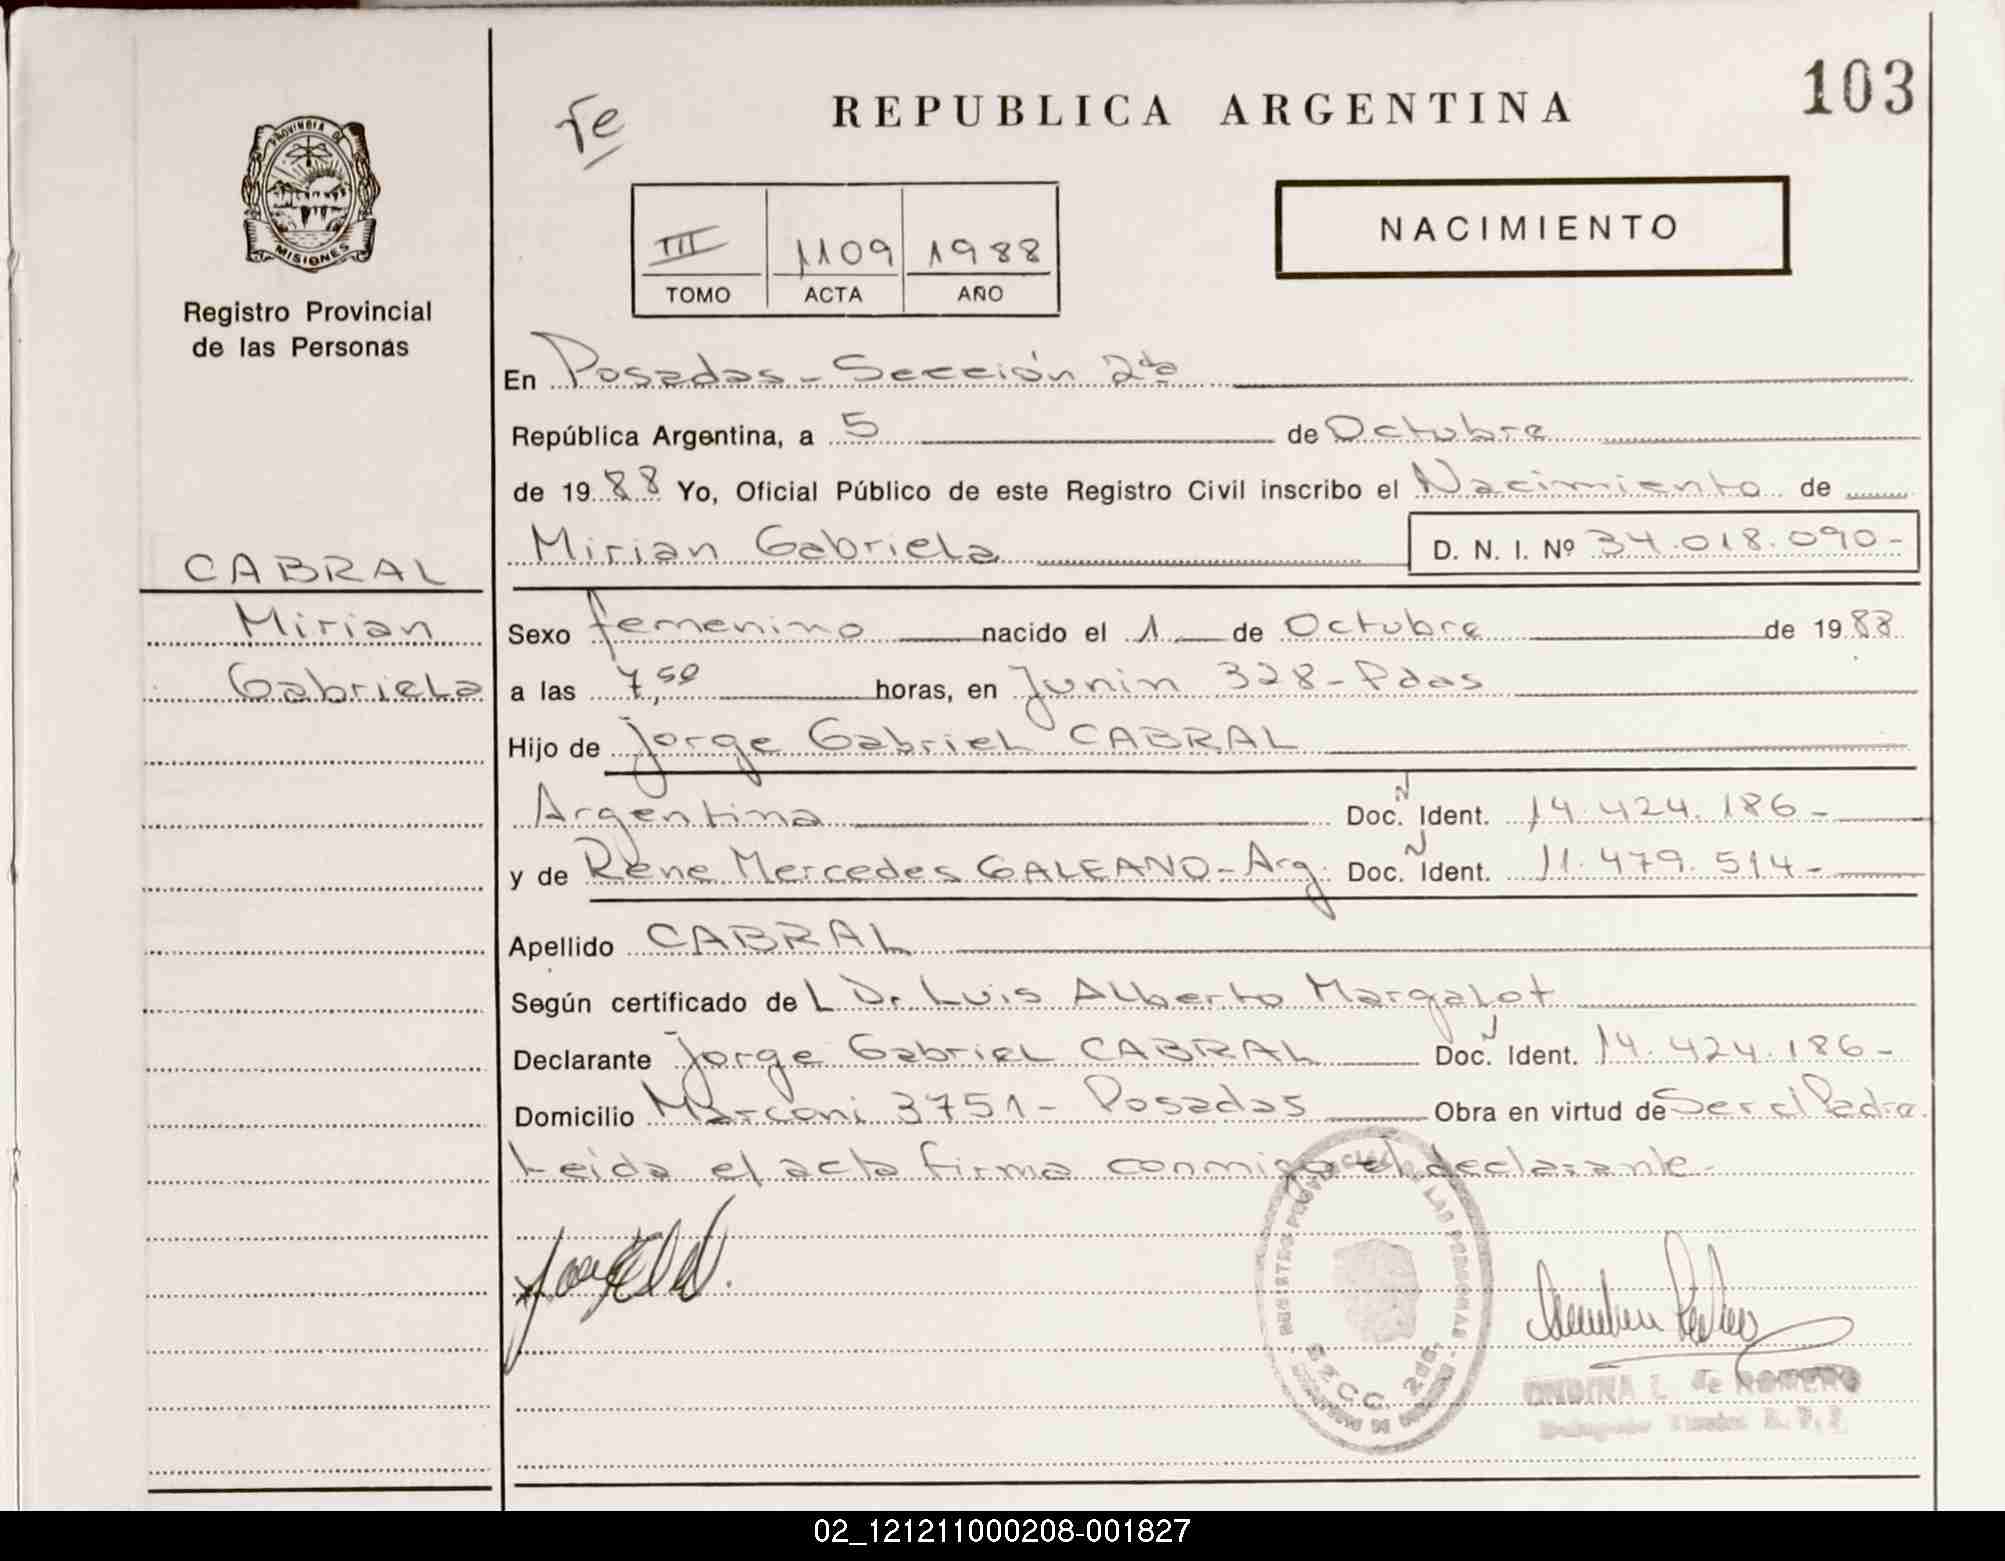 103
Te
REPUBLICA ARGENTINA
PROVINCIA DE
MISIONES
Registro Provincial
de las Personas
NACIMIENTO
III 1109 1988
TOMO ACTA AÑO
En Posadas - Sección 2da
República Argentina, a 5 de Octubre
de 1988 Yo, Oficial Público de este Registro Civil inscribo el Nacimiento de
Mirian Gabriela D. N. I. Nº 34.018.090-
CABRAL
Mirian
Gabriela
Sexo femenino nacido el 1 de Octubre de 1988
a las 7,50 horas, en Junin 328 - Pdas
Hijo de Jorge Gabriel CABRAL
Argentina Doc. Ident. 14.424.186-
y de Rene Mercedes GALEANO - Arg. Doc. Ident. 11.479.514-
Apellido CABRAL
Según certificado de L Dr Luis Alberto Margalot
Declarante Jorge Gabriel CABRAL Doc. Ident. 14.424.186-
Domicilio Marconi 3751 - Posadas Obra en virtud de Ser el Padre
Leida el acta firma conmigo el declarante-
REGISTRO PROVINCIAL DE LAS PERSONAS
SECC. 2da.
ONDINA L. de ROMERO
02_121211000208-001827